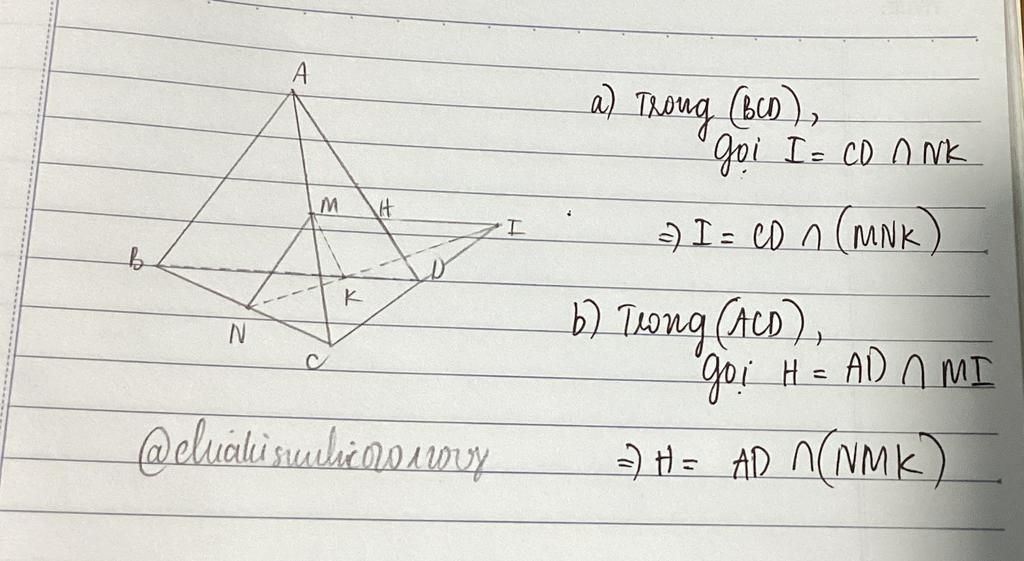 A
M
H
I
B
D
K
N
C
a) Trong (BCD),
gọi I = CD ∩ NK
⇒ I = CD ∩ (MNK)
b) Trong (ACD),
gọi H = AD ∩ MI
⇒ H = AD ∩ (NMK)